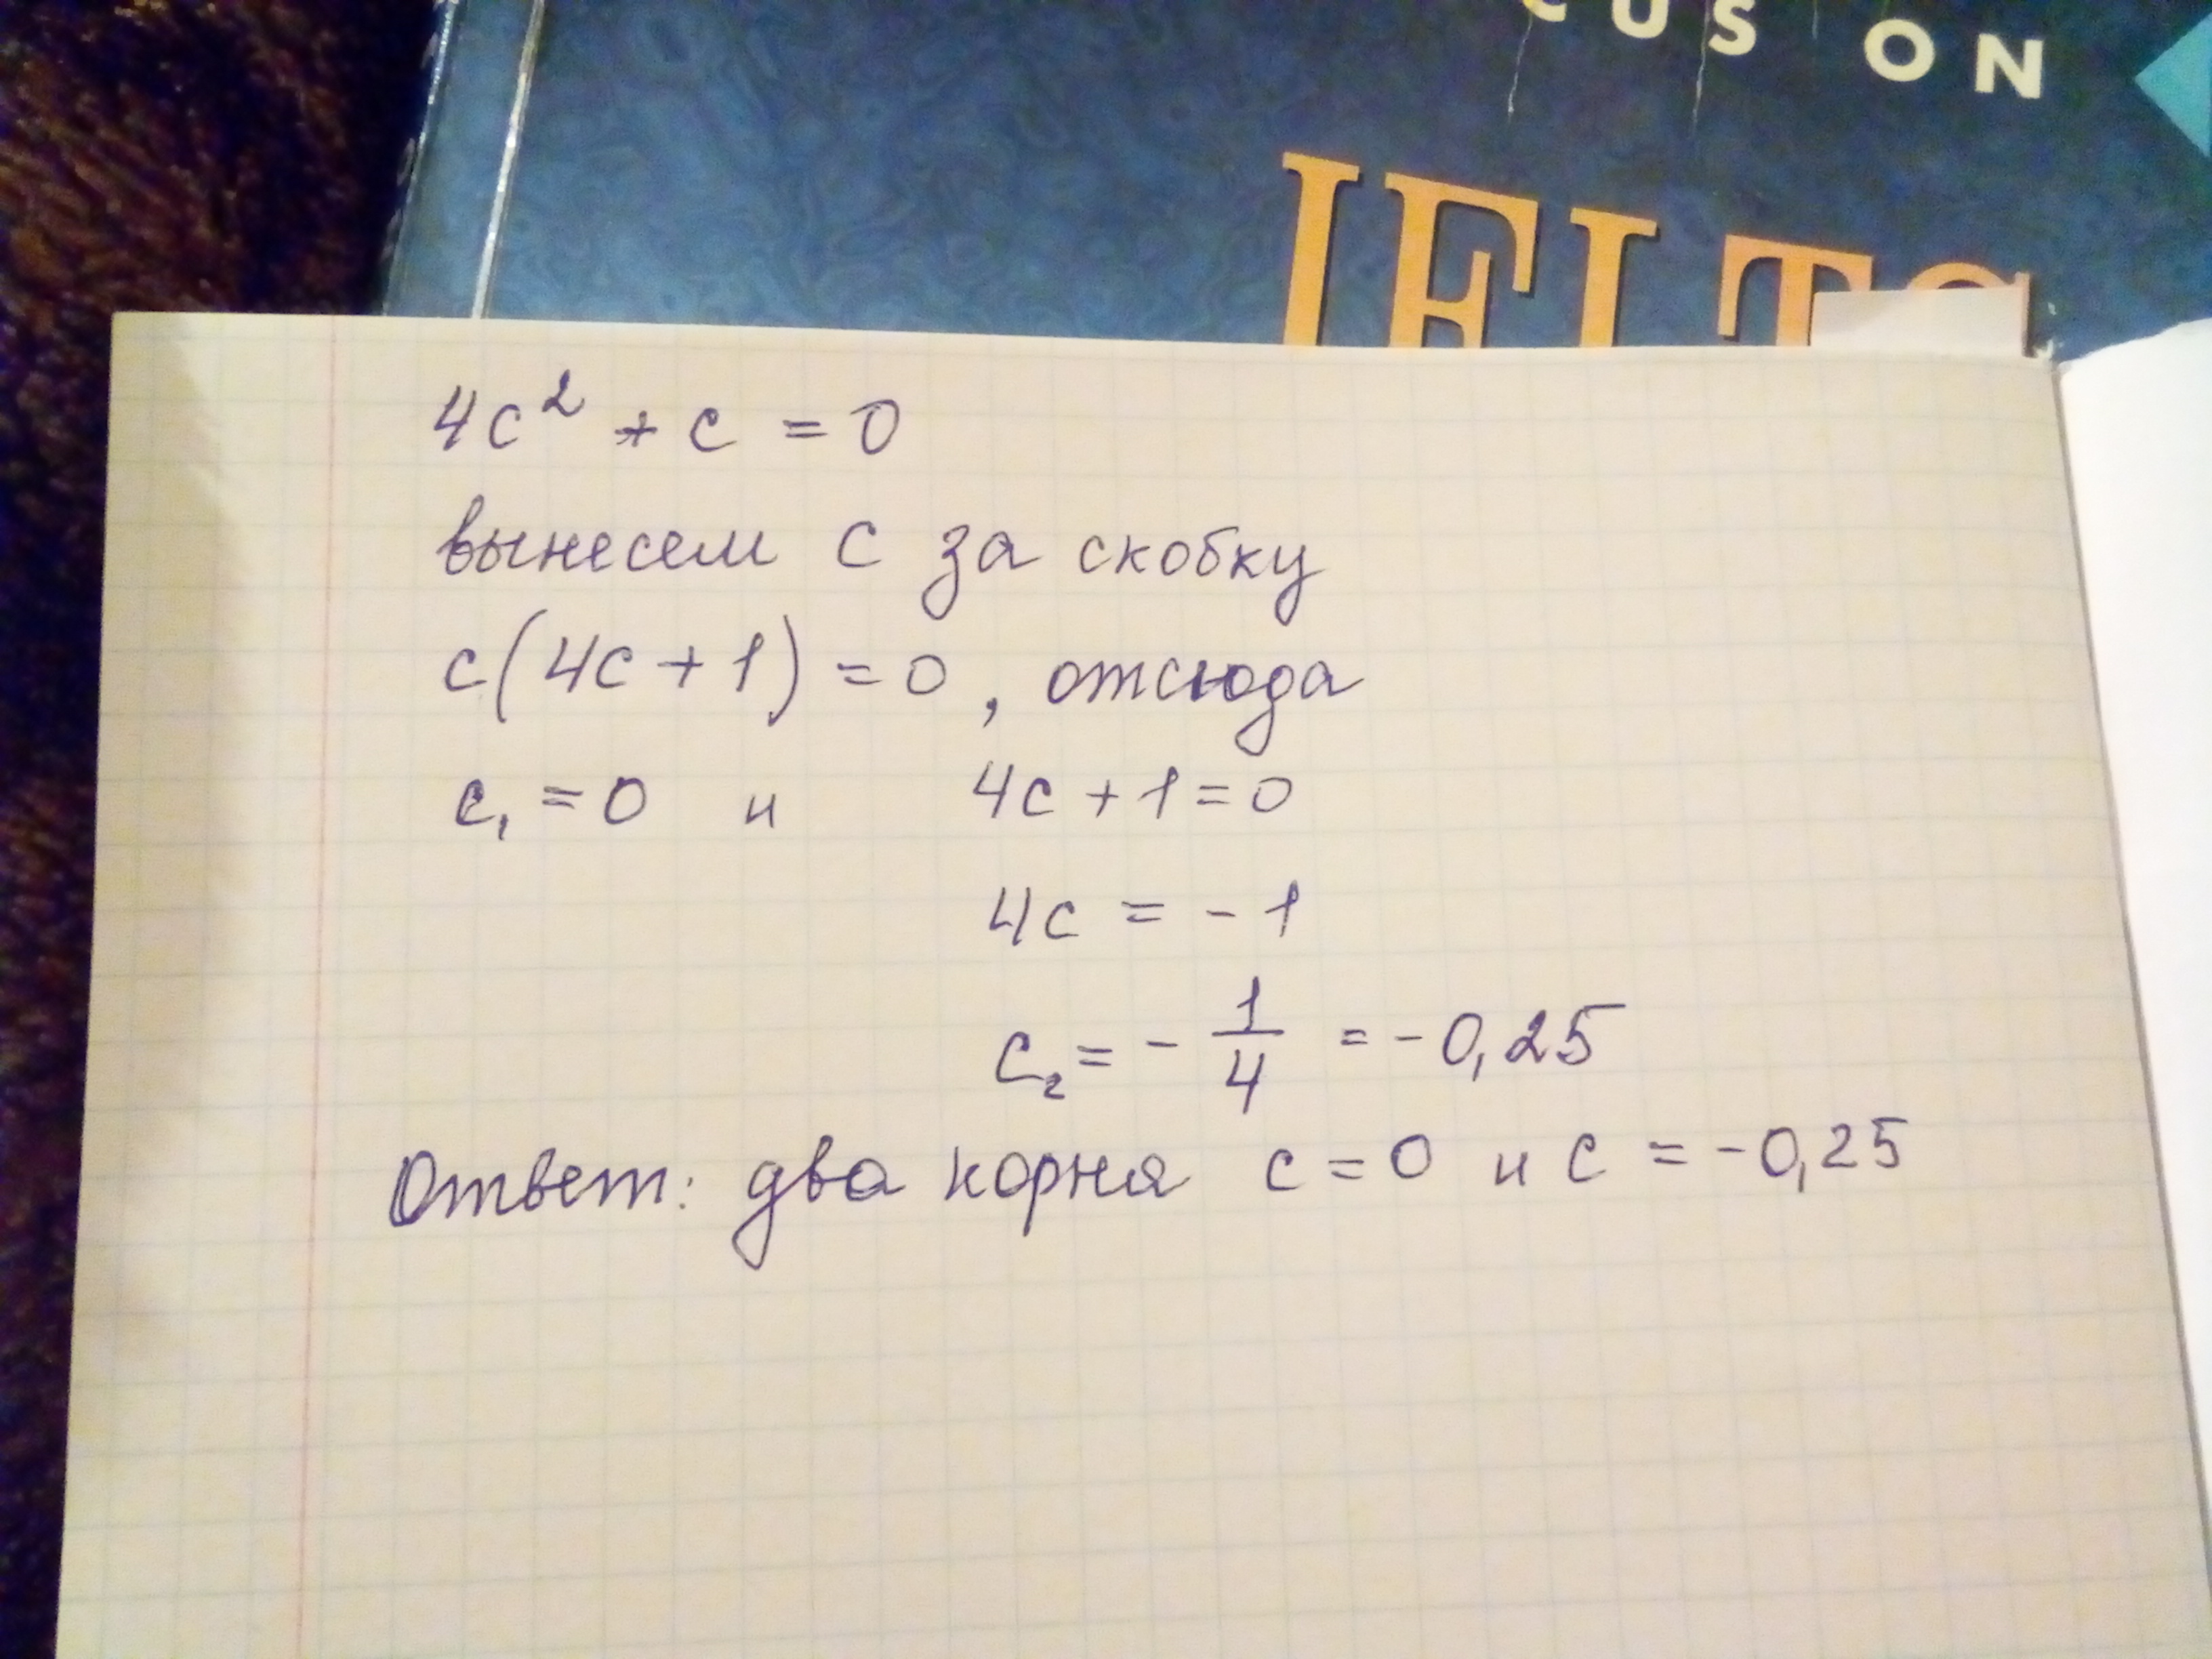 CUS ON
IELTS
4c² + c = 0
вынесем c за скобку
c(4c + 1) = 0, отсюда
c₁ = 0 и 4c + 1 = 0
4c = - 1
c₂ = - 1/4 = - 0,25
Ответ: два корня c = 0 и c = - 0,25